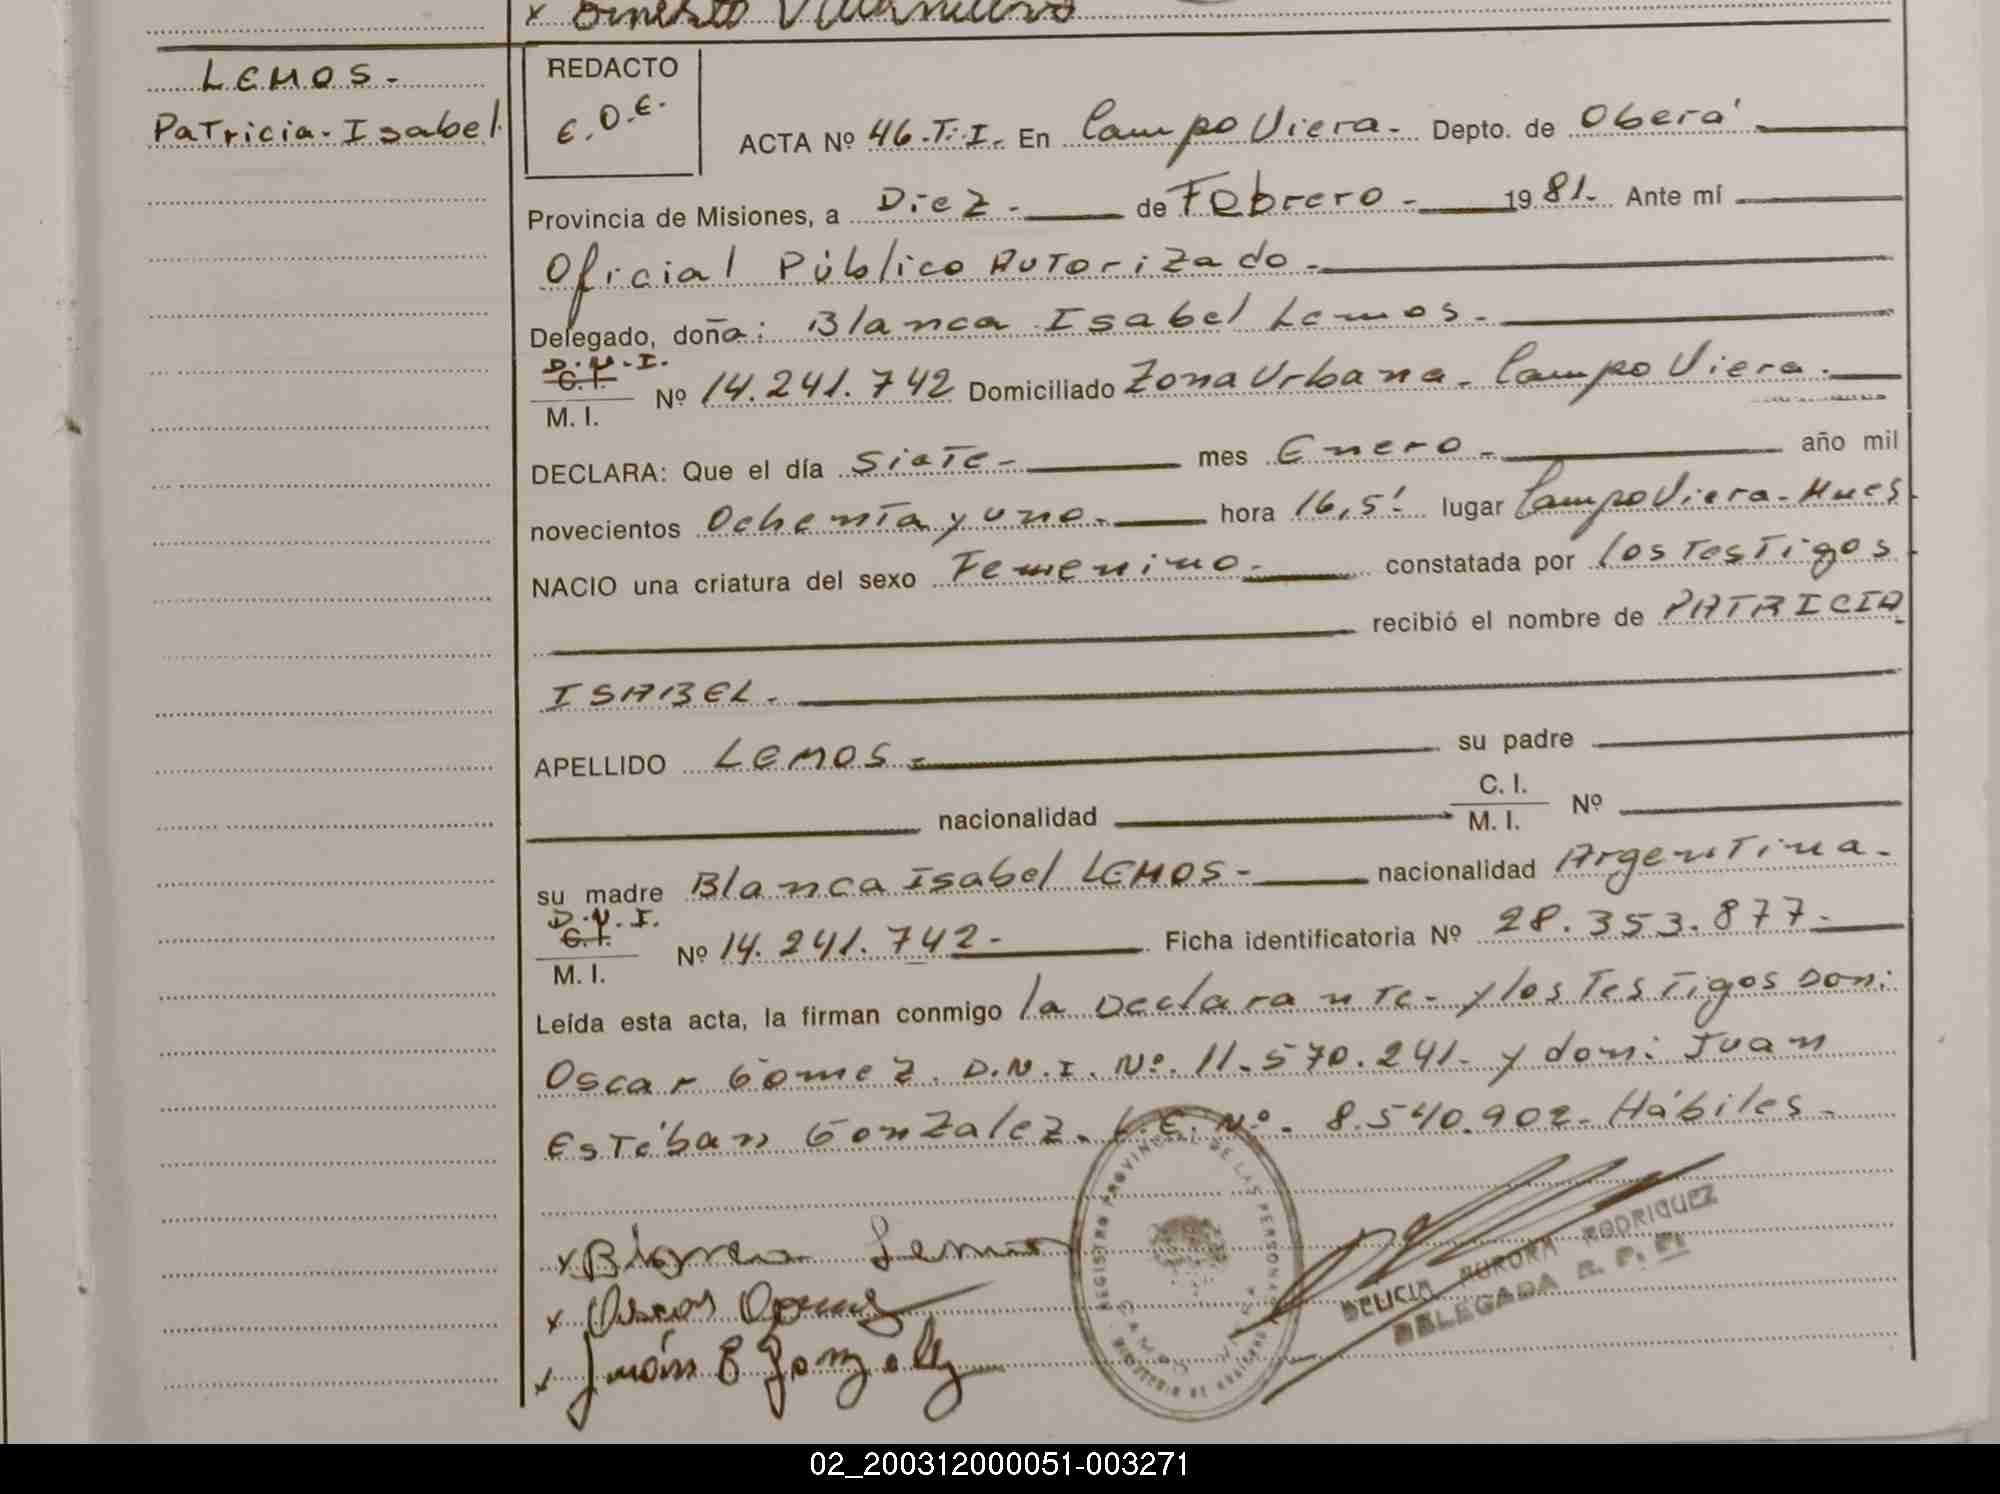 x Ernesto Villanueva
LEMOS.-
Patricia-Isabel
REDACTO
E.O.E.
ACTA Nº 46.T.I. En Campo Viera.- Depto. de Oberá
Provincia de Misiones, a Diez.- de Febrero.- 1981.- Ante mí
Oficial Público Autorizado.-
Delegado, doña: Blanca Isabel Lemos.-
D.N.I.
C. I.
M. I.
Nº 14.241.742 Domiciliado Zona Urbana.- Campo Viera.-
DECLARA: Que el día Siete.- mes Enero.- año mil
novecientos Ochenta y uno.- hora 16,5' lugar Campo Viera.- Mnes
NACIO una criatura del sexo Femenino.- constatada por los Testigos
recibió el nombre de PATRICIA
ISABEL.-
APELLIDO LEMOS.- su padre
nacionalidad C. I.
M. I. Nº
su madre Blanca Isabel LEMOS.- nacionalidad Argentina.-
D.N.I.
C. I.
M. I.
Nº 14.241.742.- Ficha identificatoria Nº 28.353.877.-
Leída esta acta, la firman conmigo la Declarante.- y los Testigos Don:
Oscar Gomez. D.N.I. Nº. 11.570.241.- y don: Juan
Estéban Gonzalez. L.E. Nº. 8.540.902.- Hábiles.-
x Blanca Lemos
x Oscar Gomez
x Juán E Gonzalez
REGISTRO PROVINCIAL DE LAS PERSONAS
CAMPO VIERA
DELICIA AURORA RODRIGUEZ
DELEGADA R. P. P.
02_200312000051-003271